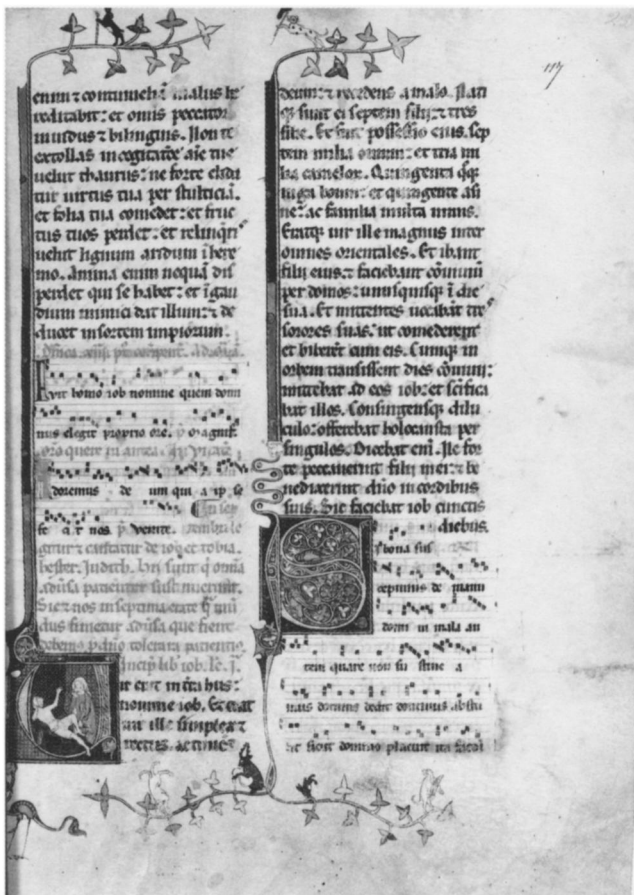 enim et continuebit malus he
reditabit: et omis peccator
inuidus et bilinguis. Non te
extollas in cogitatōe aīe tue
uelut thaurus: ne forte elida
tur uirtus tua per stulticiā.
et folia tua comedet: et fruc
tus tuos perdet: et relinqri
uelut lignum aridum ī here
mo. Anima enim nequā dis
perdet qui se habet: et ī gau
dium inimici dat illum: et de
ducet in sortem impiorum.
uit homo iob nomine quem domi
nus elegit proprio ore.
doremus de um qui a ip se
fe c it nos. venite.
gitur et cantatur de iob et tobia.
hester. Iudith. hii sunt qͥ omīa
adūsa patienter sustinuerunt.
Sic et nos in septima etate qͣ mū
dus finietur adūsa que fient
debemus p dn̄o tolerare patienter.
Incip lib iob. le. j.
ir erat in tra hus:
nomine iob. Et erat
uir ille simplex et
rectus. ac timēs
deum: et recedens a malo. Nati
qȝ sunt ei septem filij: et tres
filie. Et fuit possessio eius. sep
tem milia ouium: et tria mi
lia camelorum. Quingenta qȝ
iuga boum: et quingente asi
ne: ac familia multa nimis.
Eratqȝ uir ille magnus inter
omnes orientales. Et ibant
filij eius: et faciebant cōuiuiū
per domos: unusquisqȝ ī die
sua. Et mittentes uocabāt tres
sorores suas. ut comederent
et biberēt cum eis. Cumqȝ in
orbem transissent dies cōuiuii:
mittebat ad eos iob: et scifica
bat illos. Consurgensqȝ dilu
culo: offerebat holocausta per
singulos. Dicebat enī. Ne for
te peccauerint filij mei: et be
nedixerint dn̄o in cordibus
suis. Sic faciebat iob cunctis
diebus.
S i bona sus
cepimus de manu
domi ni mala au
tem quare non su stine a
mus dominus dedit dominus abstu
lit sicut domino placuit ita factū
117